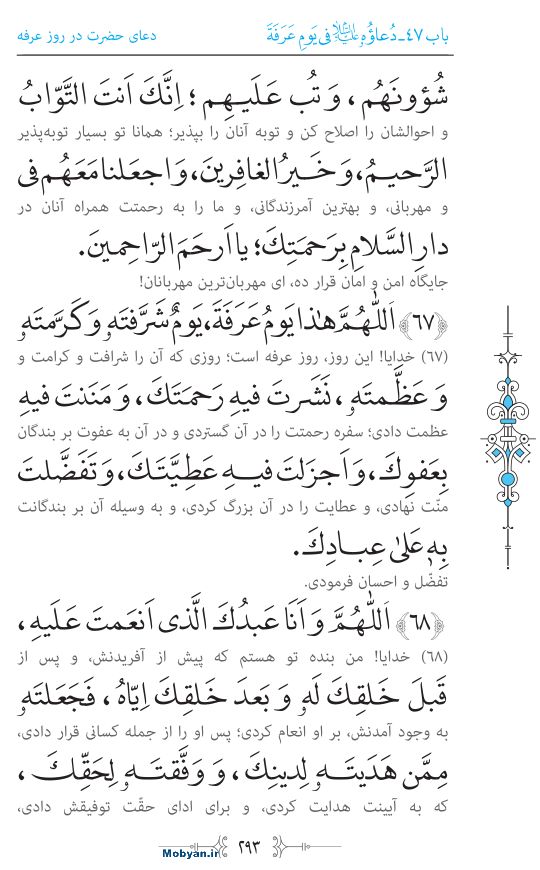 باب ٤٧ـ دُعاؤُهُ فی یَومِ عَرَفَةَ
دعای حضرت در روز عرفه
شُؤونَهُم ، وَ تُب عَلَیهِم ؛ اِنَّكَ اَنتَ التَّوّابُ
و احوالشان را اصلاح کن و توبه آنان را بپذیر؛ همانا تو بسیار توبه‌پذیر
الرَّحیمُ، وَ خَیرُ الغافِرینَ، وَ اجعَلنا مَعَهُم فی
و مهربانی، و بهترین آمرزندگانی، و ما را به رحمتت همراه آنان در
دارِ السَّلامِ بِرَحمَتِكَ؛ یا اَرحَمَ الرّاحِمینَ.
جایگاه امن و امان قرار ده، ای مهربان‌ترین مهربانان!
﴿٦٧﴾ اَللّٰهُمَّ هٰذا یَومُ عَرَفَةَ، یَومٌ شَرَّفتَهٗ وَ كَرَّمتَهٗ
(٦٧) خدایا! این روز، روز عرفه است؛ روزی که آن را شرافت و کرامت و
وَ عَظَّمتَهٗ ، نَشَرتَ فیهِ رَحمَتَكَ، وَ مَنَنتَ فیهِ
عظمت دادی؛ سفره رحمتت را در آن گستردی و در آن به عفوت بر بندگان
بِعَفوِكَ، وَ اَجزَلتَ فیهِ عَطِیَّتَكَ، وَ تَفَضَّلتَ
منّت نهادی، و عطایت را در آن بزرگ کردی، و به وسیله آن بر بندگانت
بِهٖ عَلیٰ عِبادِكَ.
تفضّل و احسان فرمودی.
﴿٦٨﴾ اَللّٰهُمَّ وَ اَنَا عَبدُكَ الَّذی اَنعَمتَ عَلَیهِ ،
(٦٨) خدایا! من بنده تو هستم که پیش از آفریدنش، و پس از
قَبلَ خَلقِكَ لَهٗ وَ بَعدَ خَلقِكَ اِیّاهُ ، فَجَعَلتَهٗ
به وجود آمدنش، بر او انعام کردی؛ پس او را از جمله کسانی قرار دادی،
مِمَّن هَدَیتَهٗ لِدینِكَ ، وَ وَفَّقتَهٗ لِحَقِّكَ ،
که به آیینت هدایت کردی، و برای ادای حقّت توفیقش دادی،
٢٩٣
Mobyan.ir